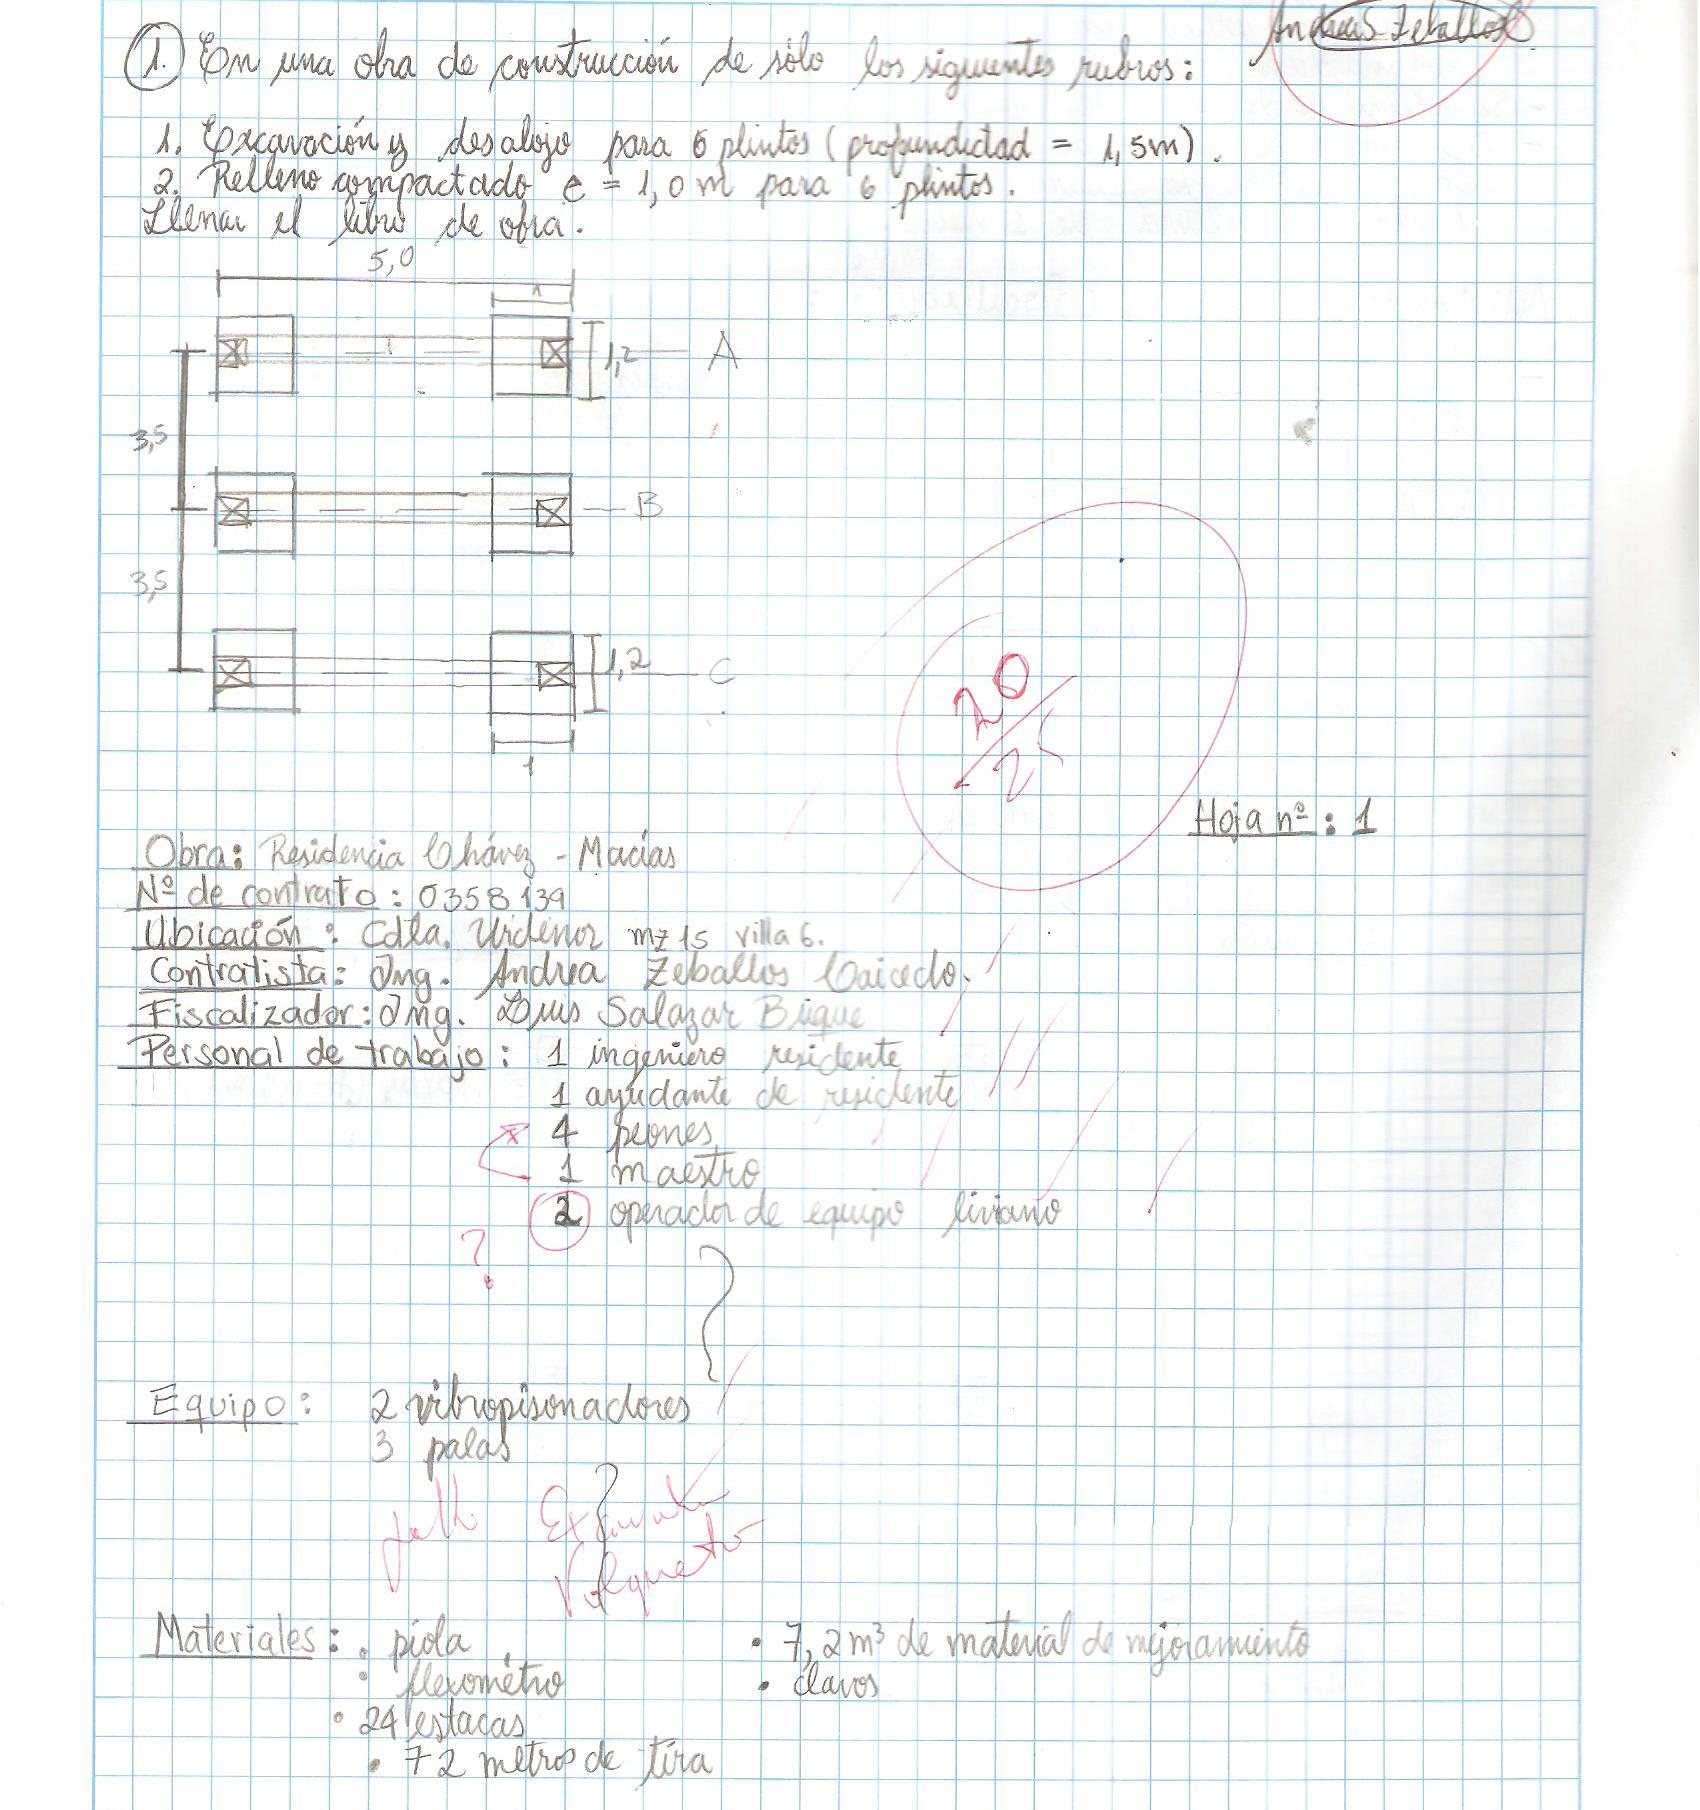 Andrea Zeballos
1. En una obra de construcción de sólo los siguientes rubros:
1. Excavación y desalojo para 6 plintos (profundidad = 1,5m).
2. Relleno compactado e = 1,0 m para 6 plintos.
Llenar el libro de obra.
5,0
1
1,2
A
3,5
B
3,5
1,2
C
1
20/25
Hoja nº: 1
Obra: Residencia Chávez - Macías
Nº de contrato: 0358139
Ubicación: Cdla. Urdenor mz 15 villa 6.
Contratista: Ing. Andrea Zeballos Caicedo.
Fiscalizador: Ing. Luis Salazar Buque
Personal de trabajo: 1 ingeniero residente
1 ayudante de residente
4 peones
1 maestro
2 operador de equipo liviano
?
Equipo: 2 vibropisonadores
3 palas
Volqueta
Materiales: • piola • 7,2 m³ de material de mejoramiento
• flexométro • clavos
• 24 estacas
• 72 metros de tira